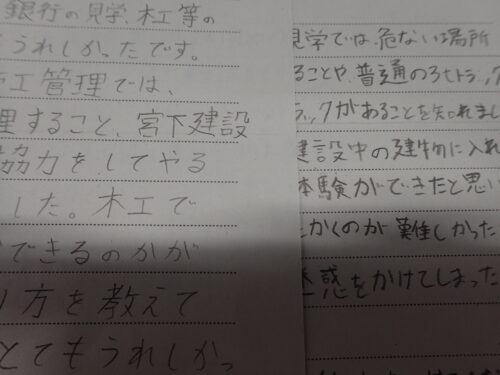 銀行の見学、木工等の
うれしかったです。
工管理では、
理すること、宮下建設
協力をしてやる
した。木工で
できるのかが
り方を教えて
とてもうれしかっ
見学では、危ない場所
ることや、普通の3tトラック
ラックがあることを知れまし
建設中の建物に入れ
体験ができたと思い
かくのが難しかった
迷惑をかけてしまった